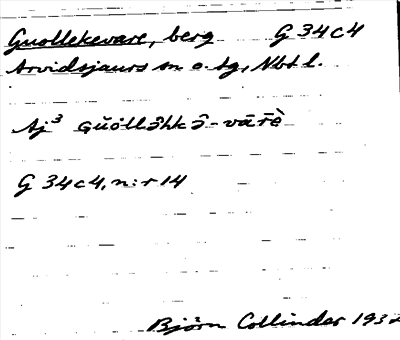 Guollekevare, berg G 34 c 4
Arvidsjaurs sn o. tg, Nbt l.
Aj³ Gŭŏllə̄hk ə̄-vārè
G 34 c 4, n:r 14
Björn Collinder 193